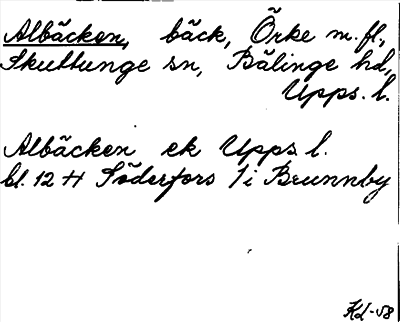 Albäcken, bäck, Örke m.fl.,
Skuttunge sn, Bälinge hd,
Upps. l.
Albäcken ek Upps. l.
bl. 12 H Söderfors 1 i Brunnby
Kd -58